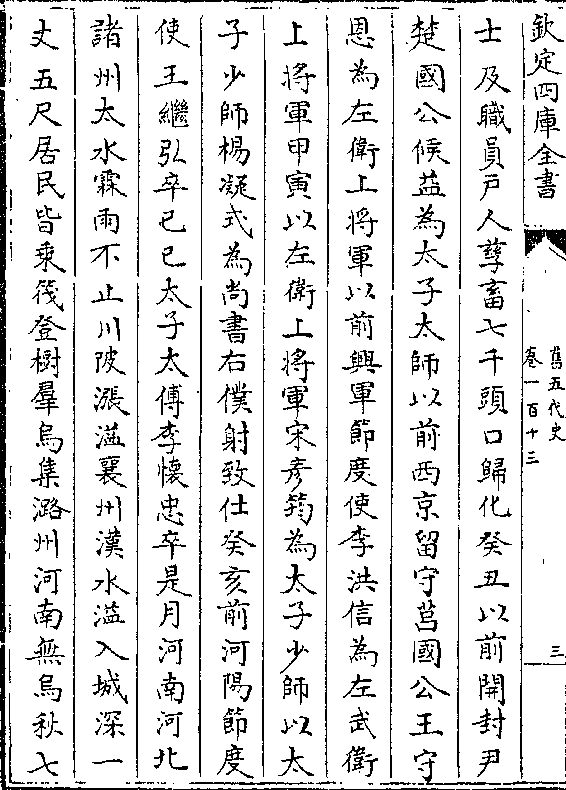 欽定四庫全書
舊五代史
卷一百十三
三
士及職員戸人孳畜七千頭口歸化癸丑以前開封尹
楚國公侯益為太子太師以前西京留守莒國公王守
恩為左衛上將軍以前興軍節度使李洪信為左武衛
上將軍甲寅以左衛上將軍宋彦筠為太子少師以太
子少師楊凝式為尚書右僕射致仕癸亥前河陽節度
使王繼弘卒己巳太子太傅李懷忠卒是月河南河北
諸州大水霖雨不止川陂漲溢襄州漢水溢入城深一
丈五尺居民皆乘筏登樹羣烏集潞州河南無烏秋七